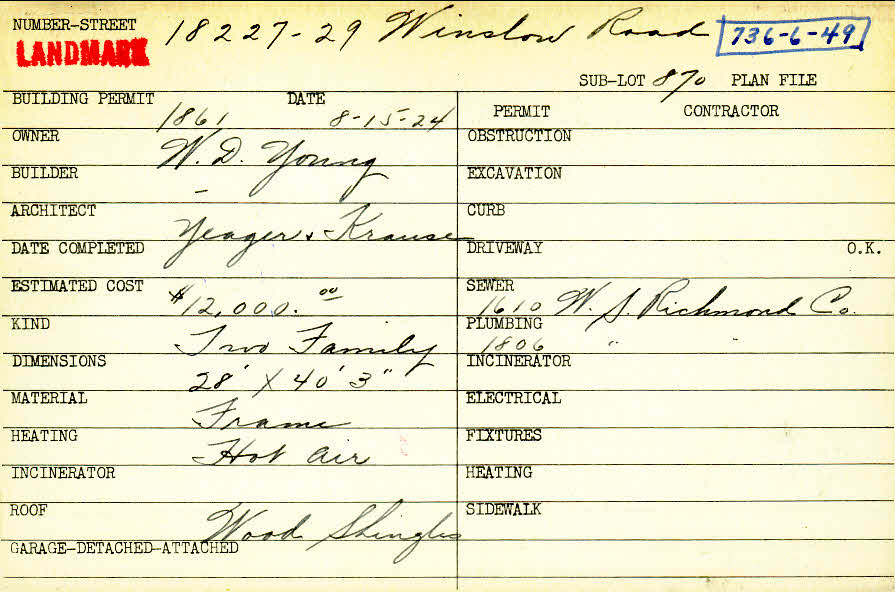 NUMBER-STREET 18227-29 Winslow Road 736-6-49
LANDMARK
SUB-LOT 870 PLAN FILE
BUILDING PERMIT 1861 DATE 8-15-24
PERMIT CONTRACTOR
OWNER W. D. Young
OBSTRUCTION
BUILDER -
EXCAVATION
ARCHITECT Yeager & Krause
CURB
DATE COMPLETED
DRIVEWAY O.K.
ESTIMATED COST $12,000.00
SEWER 1610 W. S. Richmond Co.
KIND Two Family
PLUMBING 1806 " "
DIMENSIONS 28' X 40' 3"
INCINERATOR
MATERIAL Frame
ELECTRICAL
HEATING Hot air
FIXTURES
INCINERATOR
HEATING
ROOF Wood Shingles
SIDEWALK
GARAGE-DETACHED-ATTACHED